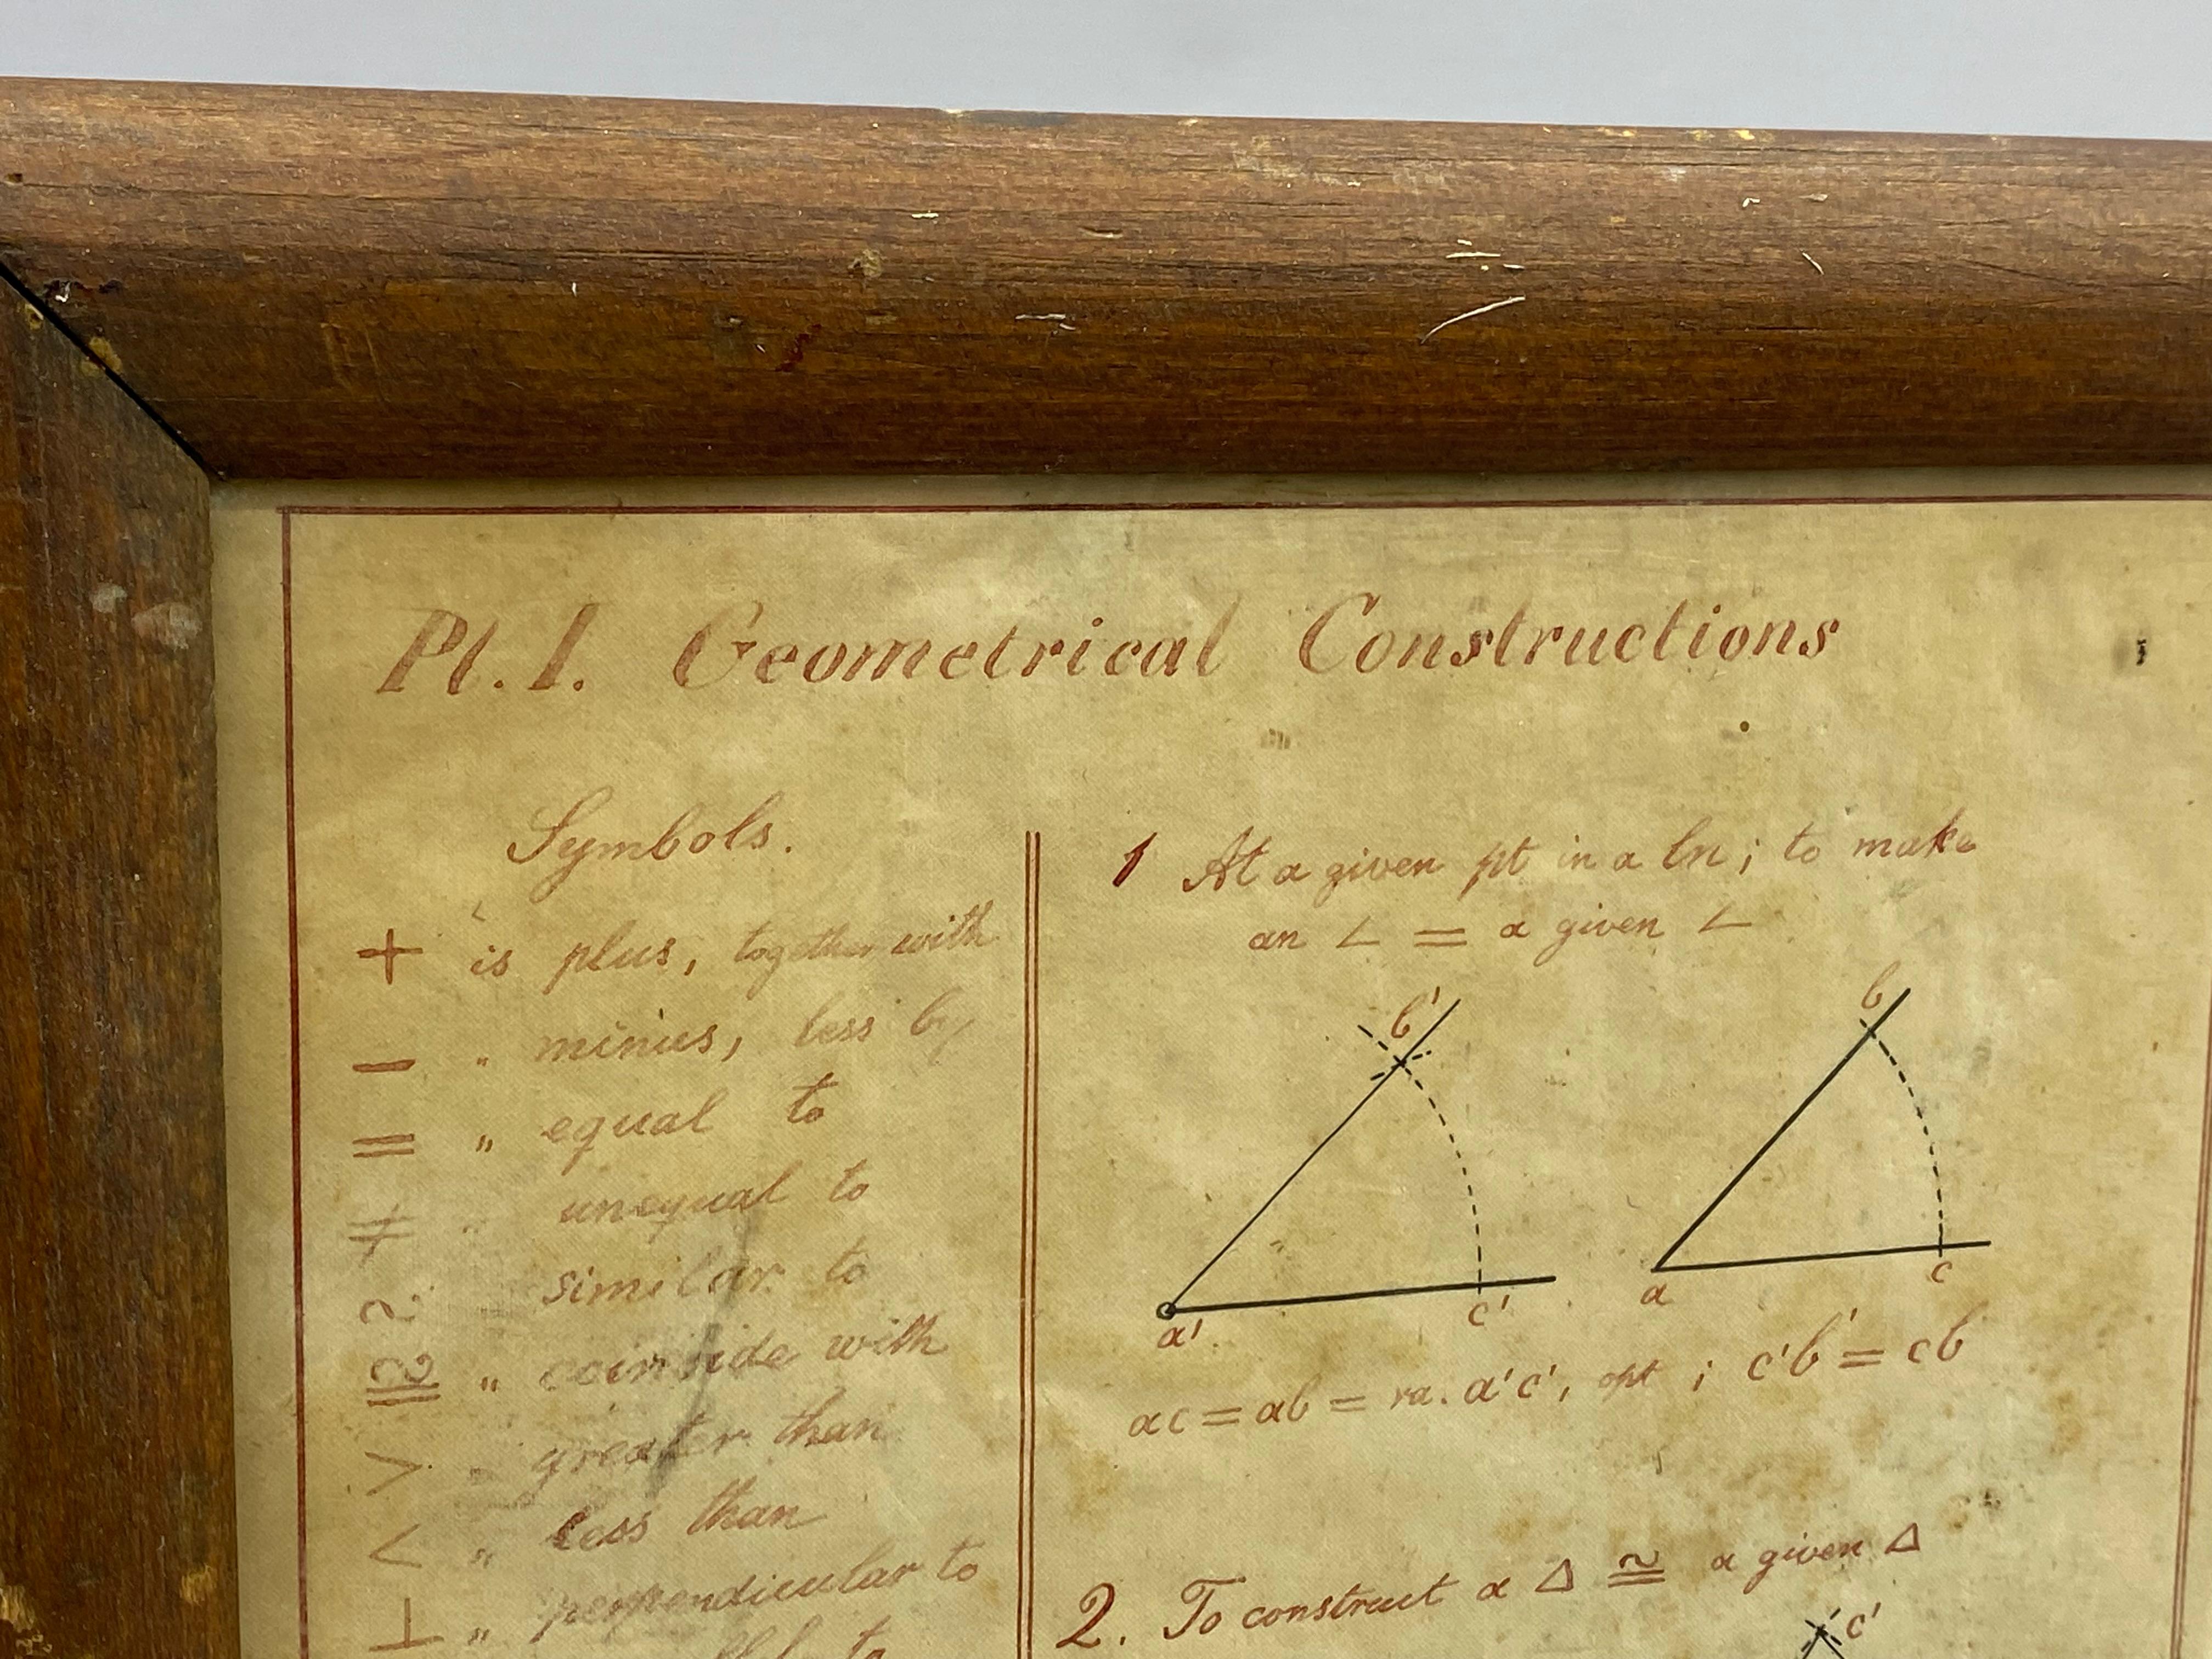 Pt. I. Geometrical Constructions
Symbols.
+ is plus, together with
− " minus, less by
= " equal to
≠ " unequal to
~ similar to
≅ " coincide with
> " greater than
< " less than
⊥ " perpendicular to
to
1 At a given pt in a ln; to make
an ∠ = a given ∠
b'
a'
c'
b
a
c
ac = ab = ra. a'c', opt ; c'b' = cb
2. To construct a △ ≅ a given △
c'